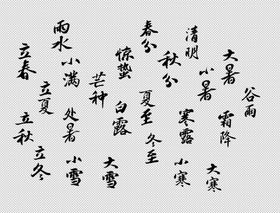 雨水
立春
小满
立夏
芒种
惊蛰
春分
秋分
清明
小暑
大暑
谷雨
立秋
处暑
白露
夏至
寒露
霜降
立冬
小雪
大雪
冬至
小寒
大寒